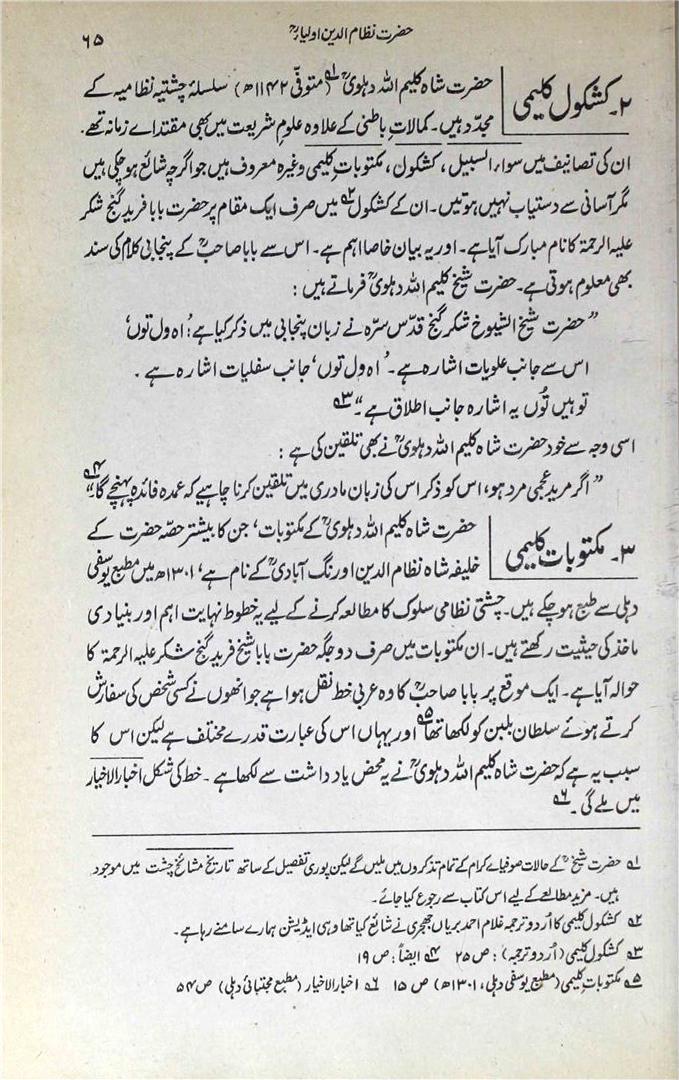 حضرت نظام الدین اولیاءؒ
۶۵
۲۔ کشکول کلیمی
حضرت شاہ کلیم اللہ دہلویؒ ۱؎ (متوفّیٰ ۱۱۴۲ھ) سلسلۂ چشتیہ نظامیہ کے
مجدّد ہیں۔ کمالاتِ باطنی کے علاوہ علومِ شریعت میں بھی مقتداے زمانہ تھے۔
ان کی تصانیف میں سواء السبیل، کشکول، مکتوباتِ کلیمی وغیرہ معروف ہیں جو اگرچہ شائع ہو چکی ہیں
مگر آسانی سے دستیاب نہیں ہوتیں۔ ان کے کشکول ۲؎ میں صرف ایک مقام پر حضرت بابا فرید گنج شکر
علیہ الرحمۃ کا نام مبارک آیا ہے۔ اور یہ بیان خاصا اہم ہے۔ اس سے بابا صاحبؒ کے پنجابی کلام کی سند
بھی معلوم ہوتی ہے۔ حضرت شیخ کلیم اللہ دہلویؒ فرماتے ہیں :
”حضرت شیخ الشیوخ شکر گنج قدّس سرّہ نے زبان پنجابی میں ذکر کیا ہے: ’اہ ول توں‘
اس سے جانب علویات اشارہ ہے۔ ’اہ ول توں‘ جانب سفلیات اشارہ ہے۔
تو ہیں تُوں یہ اشارہ جانب اطلاق ہے“ ۳؎
اسی وجہ سے خود حضرت شاہ کلیم اللہ دہلویؒ نے بھی تلقین کی ہے :
”اگر مرید عجمی مرد ہو، اس کو ذکر اس کی زبان مادری میں تلقین کرنا چاہیے کہ عمدہ فائدہ پہنچے گا“ ۴؎
۳۔ مکتوبات کلیمی
حضرت شاہ کلیم اللہ دہلویؒ کے مکتوبات، جن کا بیشتر حصّہ حضرت کے
خلیفہ شاہ نظام الدین اورنگ آبادیؒ کے نام ہے، ۱۳۰۱ھ میں مطبع یوسفی
دہلی سے طبع ہو چکے ہیں۔ چشتی نظامی سلوک کا مطالعہ کرنے کے لیے یہ خطوط نہایت اہم اور بنیادی
ماخذ کی حیثیت رکھتے ہیں۔ ان مکتوبات میں صرف دو جگہ حضرت بابا شیخ فرید گنج شکر علیہ الرحمۃ کا
حوالہ آیا ہے۔ ایک موقع پر بابا صاحبؒ کا وہ عربی خط نقل ہوا ہے جو انھوں نے کسی شخص کی سفارش
کرتے ہوئے سلطان بلبن کو لکھا تھا ۵؎ اور یہاں اس کی عبارت قدرے مختلف ہے لیکن اس کا
سبب یہ ہے کہ حضرت شاہ کلیم اللہ دہلویؒ نے یہ محض یادداشت سے لکھا ہے۔ خط کی شکل اخبار الاخیار
میں ملے گی۔ ۶؎
۱؎ حضرت شیخؒ کے حالات صوفیاے کرام کے تمام تذکروں میں ملیں گے لیکن پوری تفصیل کے ساتھ تاریخ مشائخ چشت میں موجود
ہیں۔ مزید مطالعے کے لیے اس کتاب سے رجوع کیا جائے۔
۲؎ کشکول کلیمی کا اُردو ترجمہ غلام احمد بریاں جھجری نے شائع کیا تھا وہی ایڈیشن ہمارے سامنے رہا ہے۔
۳؎ کشکول کلیمی (اُردو ترجمہ) : ص ۲۵ ۴؎ ایضاً : ص ۱۹
۵؎ مکتوبات کلیمی (مطبع یوسفی دہلی، ۱۳۰۱ھ) ص ۱۵ ۶؎ اخبار الاخیار (مطبع مجتبائی دہلی) ص ۵۴